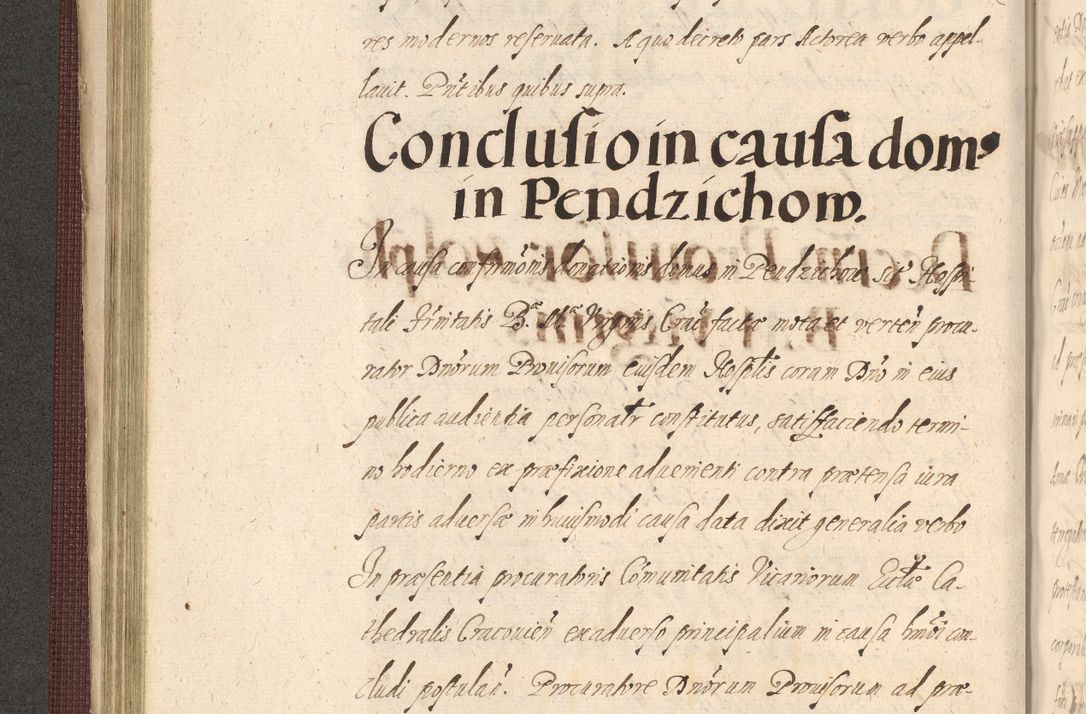 res modernos reseruata. A quo decreto pars Actorea verbo appel-
lauit. Pñtibus quibus supra.
Conclusio in causa dom9
in Pendzichow.
In causa confirmõnis donationis domus in Pendzichow sitę Hospi
tali Trinitatis B.ae M.ae Virginis Crac̃ factæ mota et verteñ procu-
rator Dnõrum Prouisorum eiusdem Hosptlis coram Dnõ in eius
publica audientia personalr̃ constitutus, satisfaciendo termi-
no hodierno ex præfixione aduenienti contra prætensa iura
partis aduersæ in huiusmodi causa data dixit generalia verbo
In præsentia procuratoris Cõmunitatis Vicariorum Ecclæ Ca-
thedralis Cracouieñ ex aduerso principalium in causa hmõi con-
cludi postulañ. Procuratore Dnõrum Prouisorum ad præ-